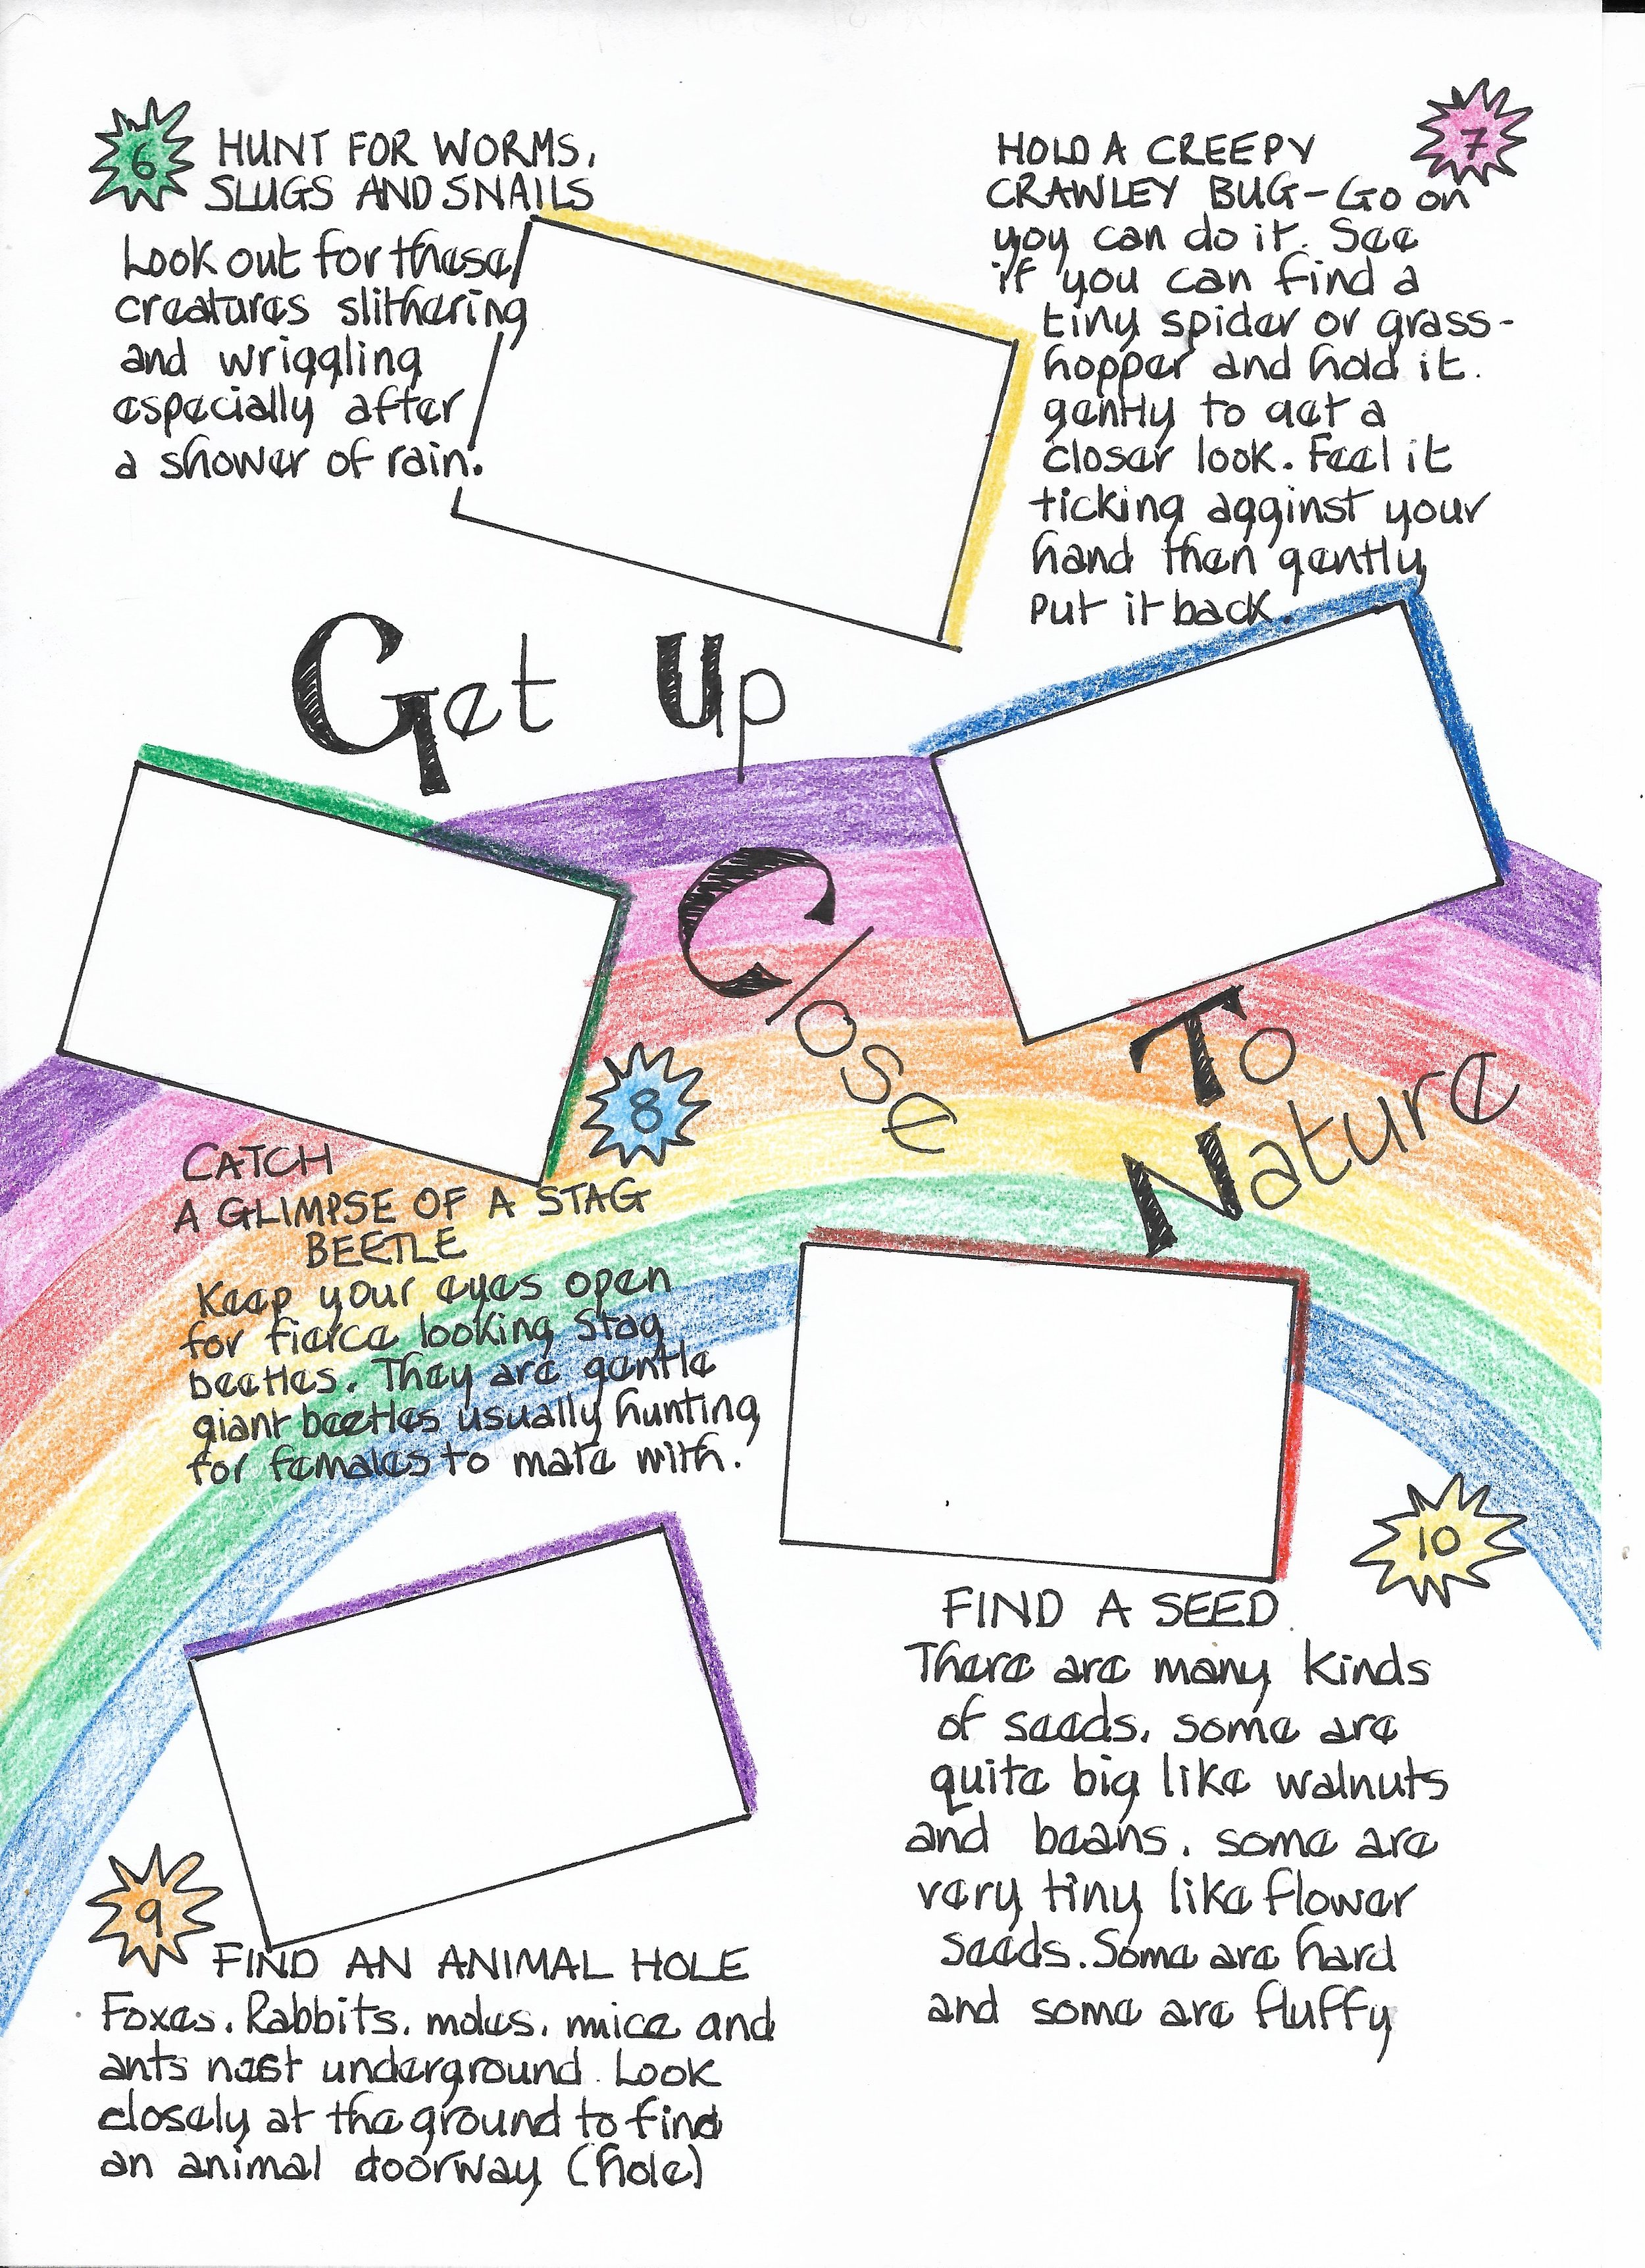 6
HUNT FOR WORMS,
SLUGS AND SNAILS
Look out for these
creatures slithering
and wriggling
especially after
a shower of rain.
7
HOLD A CREEPY
CRAWLEY BUG - Go on
yoy can do it. See
if you can find a
tiny spider or grass-
hopper and hold it.
gently to get a
closer look. Feel it
ticking against your
hand then gently
put it back.
Get Up
Close
To
Nature
8
CATCH
A GLIMPSE OF A STAG
BEETLE
Keep your eyes open
for fierce looking Stag
beetles. They are gentle
giant beetles usually hunting
for females to mate with.
9
FIND AN ANIMAL HOLE
Foxes, Rabbits, moles, mice and
ants nest underground. Look
closely at the ground to find
an animal doorway (hole)
10
FIND A SEED
There are many kinds
of seeds, some are
quite big like walnuts
and beans, some are
very tiny like flower
seeds. Some are hard
and some are fluffy